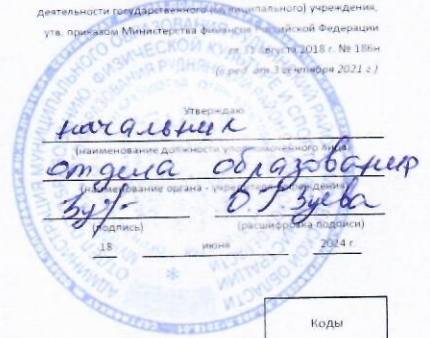 деятельности государственного (муниципального) учреждения,
утв. приказом Министерства финансов Российской Федерации
от 31 августа 2018 г. № 186н
(с ред. от 3 сентября 2021 г.)
Утверждаю
начальник
(наименование должности уполномоченного лица)
отдела образования
(наименование органа - учредителя учреждения)
О.Г.Зуева
(подпись) (расшифровка подписи)
18 июня 2024 г.
Коды